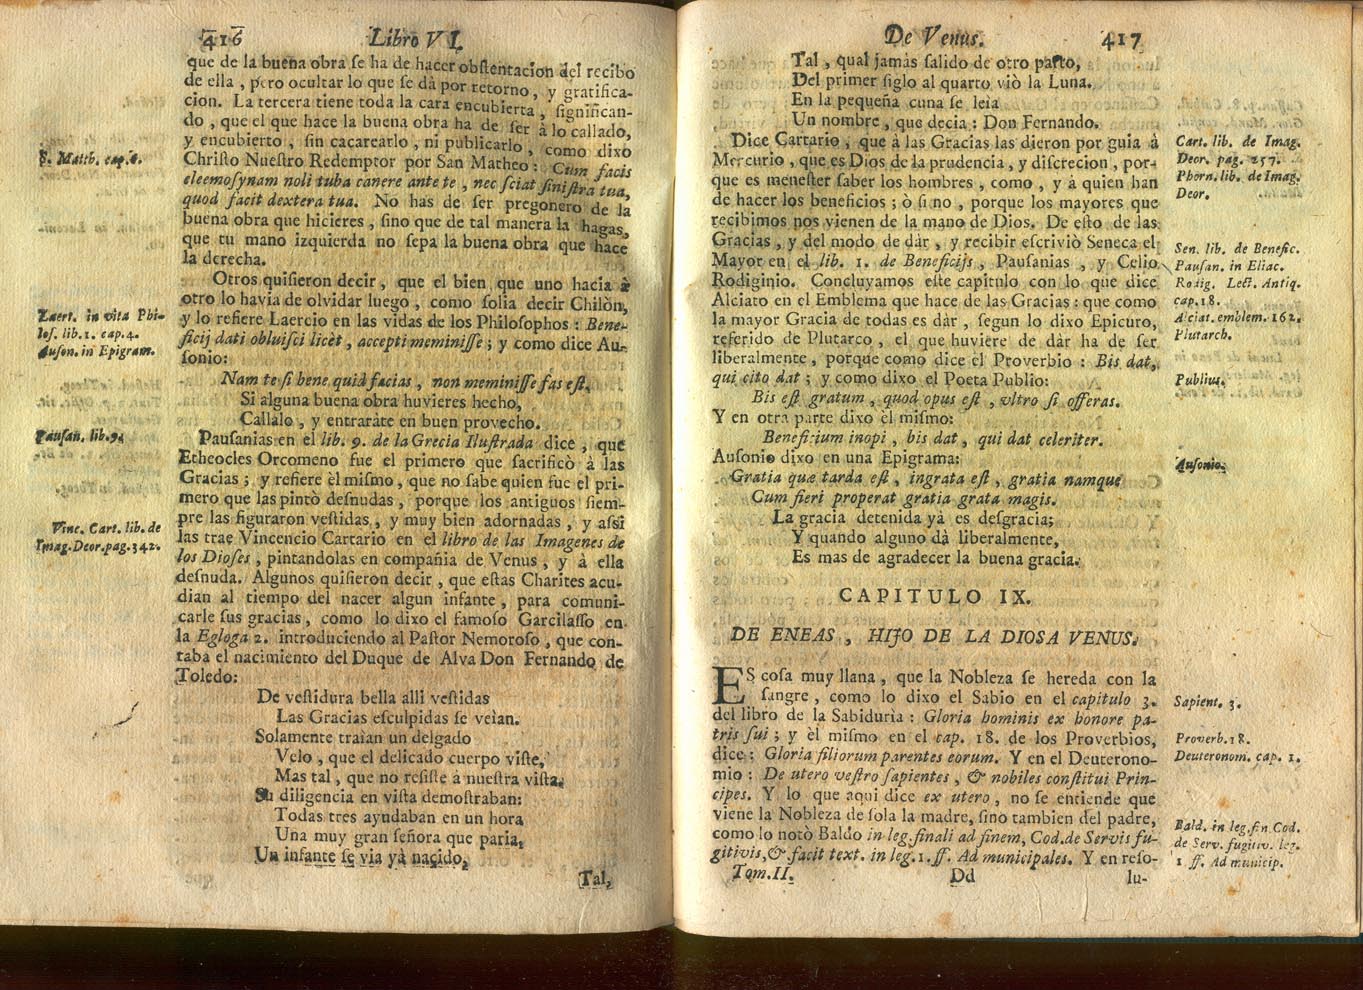 416
Libro VI.
que de la buena obra ſe ha de hacer obſtentacion del recibo
de ella, pero ocultar lo que ſe dà por retorno, y gratifica-
cion. La tercera tiene toda la cara encubierta, ſignifican-
do, que el que hace la buena obra ha de ſer à lo callado,
y encubierto, ſin cacarearlo, ni publicarlo, como dixo
Chriſto Nueſtro Redemptor por San Matheo: Cum facis
eleemoſynam noli tuba canere ante te, nec ſciat ſiniſtra tua,
quod facit dextera tua. No has de ſer pregonero de la
buena obra que hicieres, ſino que de tal manera la hagas,
que tu mano izquierda no ſepa la buena obra que hace
la derecha.
Otros quiſieron decir, que el bien que uno hacia à
otro lo havia de olvidar luego, como ſolia decir Chilòn,
y lo refiere Laercio en las vidas de los Philoſophos: Bene-
ficij dati obluiſci licèt, accepti meminiſſe; y como dice Au-
ſonio:
Nam te ſi bene quid facias, non meminiſſe fas eſt.
Si alguna buena obra huvieres hecho,
Callalo, y entraràte en buen provecho.
Pauſanias en el lib. 9. de la Grecia Iluſtrada dice, que
Etheocles Orcomeno fue el primero que ſacrificò à las
Gracias; y refiere èl miſmo, que no ſabe quien fue el pri-
mero que las pintò deſnudas, porque los antiguos ſiem-
pre las figuraron veſtidas, y muy bien adornadas, y aſsi
las trae Vincencio Cartario en el libro de las Imagenes de
los Dioſes, pintandolas en compañia de Venus, y à ella
deſnuda. Algunos quiſieron decir, que eſtas Charites acu-
dian al tiempo del nacer algun infante, para comuni-
carle ſus gracias, como lo dixo el famoſo Garcilaſſo en
la Egloga 2. introduciendo al Paſtor Nemoroſo, que con-
taba el nacimiento del Duque de Alva Don Fernando de
Toledo:
De veſtidura bella alli veſtidas
Las Gracias eſculpidas ſe veìan.
Solamente traìan un delgado
Velo, que el delicado cuerpo viſte,
Mas tal, que no reſiſte à nueſtra viſta.
Su diligencia en viſta demoſtraban:
Todas tres ayudaban en un hora
Una muy gran ſeñora que paria,
Un infante ſe via yà nacido,
Tal,
S. Matth. cap. 6.
Laert. in vita Phi-
loſ. lib. 1. cap. 4.
Auſon. in Epigram.
Pauſan. lib. 9.
Vinc. Cart. lib. de
Imag. Deor. pag. 342.
De Venus.
417
Tal, qual jamàs ſalido de otro parto,
Del primer ſiglo al quarto viò la Luna.
En la pequeña cuna ſe leìa
Un nombre, que decia: Don Fernando.
Dice Cartario, que à las Gracias las dieron por guia à
Mercurio, que es Dios de la prudencia, y diſcrecion, por-
que es meneſter ſaber los hombres, como, y à quien han
de hacer los beneficios; ò ſi no, porque los mayores que
recibimos nos vienen de la mano de Dios. De eſto de las
Gracias, y del modo de dàr, y recibir eſcriviò Seneca el
Mayor en el lib. 1. de Beneficijs, Pauſanias, y Celio
Rodiginio. Concluyamos eſte capitulo con lo que dice
Alciato en el Emblema que hace de las Gracias: que como
la mayor Gracia de todas es dàr, ſegun lo dixo Epicuro,
referido de Plutarco, el que huviere de dàr ha de ſer
liberalmente, porque como dice el Proverbio: Bis dat,
qui cito dat; y como dixo el Poeta Publio:
Bis eſt gratum, quod opus eſt, vltro ſi offeras.
Y en otra parte dixo èl miſmo:
Beneficium inopi, bis dat, qui dat celeriter.
Auſonio dixo en una Epigrama:
Gratia quæ tarda eſt, ingrata eſt, gratia namque
Cum fieri properat gratia grata magis.
La gracia detenida yà es deſgracia;
Y quando alguno dà liberalmente,
Es mas de agradecer la buena gracia.
CAPITULO IX.
DE ENEAS, HIJO DE LA DIOSA VENUS.
ES coſa muy llana, que la Nobleza ſe hereda con la
ſangre, como lo dixo el Sabio en el capitulo 3.
del libro de la Sabidurìa: Gloria hominis ex honore pa-
tris ſui; y èl miſmo en el cap. 18. de los Proverbios,
dice: Gloria filiorum parentes eorum. Y en el Deuterono-
mio: De utero veſtro ſapientes, & nobiles conſtitui Prin-
cipes. Y lo que aqui dice ex utero, no ſe entiende que
viene la Nobleza de ſola la madre, ſino tambien del padre,
como lo notò Baldo in leg. finali ad finem, Cod. de Servis fu-
gitivis, & facit text. in leg. 1. ff. Ad municipales. Y en reſo-
Tom. II.
Dd
lu-
Cart. lib. de Imag.
Deor. pag. 257.
Phorn. lib. de Imag.
Deor.
Sen. lib. de Benefic.
Pauſan. in Eliac.
Rodig. Lect. Antiq.
cap. 18.
Alciat. emblem. 162.
Plutarch.
Publius.
Auſonio.
Sapient. 3.
Proverb. 18.
Deuteronom. cap. 1.
Bald. in leg. fin Cod.
de Serv. fugitiv. leg.
1 ff. Ad municip.